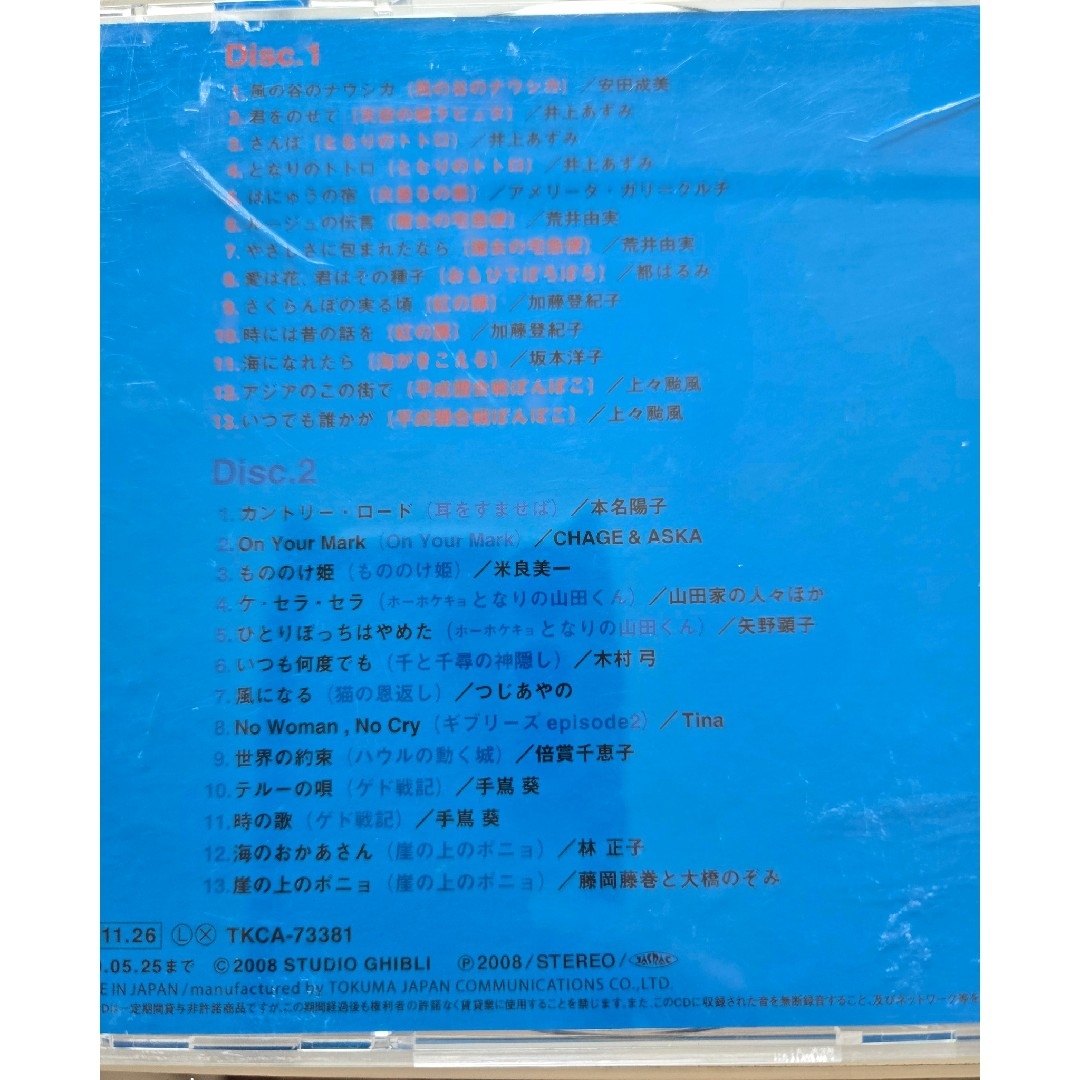 Disc.1
1.風の谷のナウシカ(風の谷のナウシカ)/安田成美
2.君をのせて(天空の城ラピュタ)/井上あずみ
3.さんぽ(となりのトトロ)/井上あずみ
4.となりのトトロ(となりのトトロ)/井上あずみ
5.はにゅうの宿(火垂るの墓)/アメリータ・ガリークルチ
6.ルージュの伝言(魔女の宅急便)/荒井由実
7.やさしさに包まれたなら(魔女の宅急便)/荒井由実
8.愛は花、君はその種子(おもひでぽろぽろ)/都はるみ
9.さくらんぼの実る頃(紅の豚)/加藤登紀子
10.時には昔の話を(紅の豚)/加藤登紀子
11.海になれたら(海がきこえる)/坂本洋子
12.アジアのこの街で(平成狸合戦ぽんぽこ)/上々颱風
13.いつでも誰かが(平成狸合戦ぽんぽこ)/上々颱風
Disc.2
1.カントリー・ロード(耳をすませば)/本名陽子
2.On Your Mark(On Your Mark)/CHAGE & ASKA
3.もののけ姫(もののけ姫)/米良美一
4.ケ・セラ・セラ(ホーホケキョとなりの山田くん)/山田家の人々ほか
5.ひとりぼっちはやめた(ホーホケキョとなりの山田くん)/矢野顕子
6.いつも何度でも(千と千尋の神隠し)/木村 弓
7.風になる(猫の恩返し)/つじあやの
8.No Woman , No Cry(ギブリーズ episode2)/Tina
9.世界の約束(ハウルの動く城)/倍賞千恵子
10.テルーの唄(ゲド戦記)/手嶌 葵
11.時の歌(ゲド戦記)/手嶌 葵
12.海のおかあさん(崖の上のポニョ)/林 正子
13.崖の上のポニョ(崖の上のポニョ)/藤岡藤巻と大橋のぞみ
11.26 Ⓛ Ⓧ TKCA-73381
.05.25まで ©2008 STUDIO GHIBLI ℗2008/STEREO/JASRAC
E IN JAPAN/manufactured by TOKUMA JAPAN COMMUNICATIONS CO.,LTD.
Dは一定期間貸与非許諾商品ですが、この期間経過後も権利者の許諾なく賃貸業に使用することを禁じます。また、このCDに収録された音を無断録音すること、及びネットワーク等を